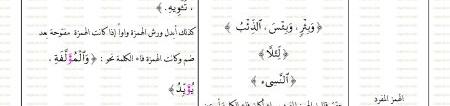 الهمز المفرد
﴿ وَبِئْرٍ، وَبِئْسَ، ٱلذِّئْبُ ﴾
﴿ لِئَلَّا ﴾
﴿ ٱلنَّسِىٓءُ ﴾
، تُـْٔوِيهِ. ﴾
كذلك أبدل ورش الهمزة واواً إذا كانت الهمزة مفتوحة بعد
ضم وكانت الهمزة فاء الكلمة نحو : ﴿ وَٱلْمُؤَلَّفَةِ ،
يُؤَيِّدُ ﴾